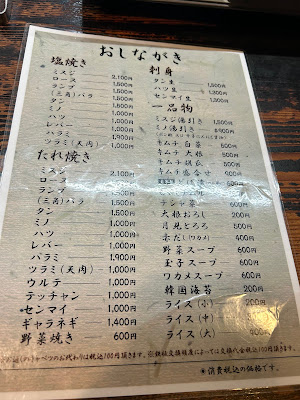 おしながき
塩焼き
ミスジ 2,100円
ロース
ランプ 1,500円
(三角)バラ 1,500円
タン 1,500円
ミノ 1,000円
ハツ 1,000円
レバー 1,000円
ハラミ 1,900円
ツラミ(天肉) 1,000円
たれ焼き
ミスジ 2,100円
ロース
ランプ 1,500円
(三角)バラ 1,500円
タン 1,500円
ミノ 1,000円
ハツ 1,000円
レバー 1,000円
ハラミ 1,900円
ツラミ(天肉) 1,000円
ウルテ 1,000円
テッチャン 1,000円
センマイ 1,000円
ギャラネギ 1,400円
野菜焼き 600円
刺身
タン生 1,500円
ハツ生 1,200円
センマイ生 1,200円
一品物
ミスジ湯引き 1,500円
ミノ湯引き
キムチ 白菜 500円
キムチ 大根 500円
キムチ 胡瓜 500円
キムチ 盛合せ
チシャ菜
大根おろし 200円
月見とろろ 500円
赤だし(ワカメ) 400円
野菜スープ 600円
玉子スープ 600円
ワカメスープ 600円
韓国海苔 200円
ライス(小) 200円
ライス(中)
ライス(大) 400円
キャベツのお代わりは税込100円頂きます。
*消費税込の価格です。